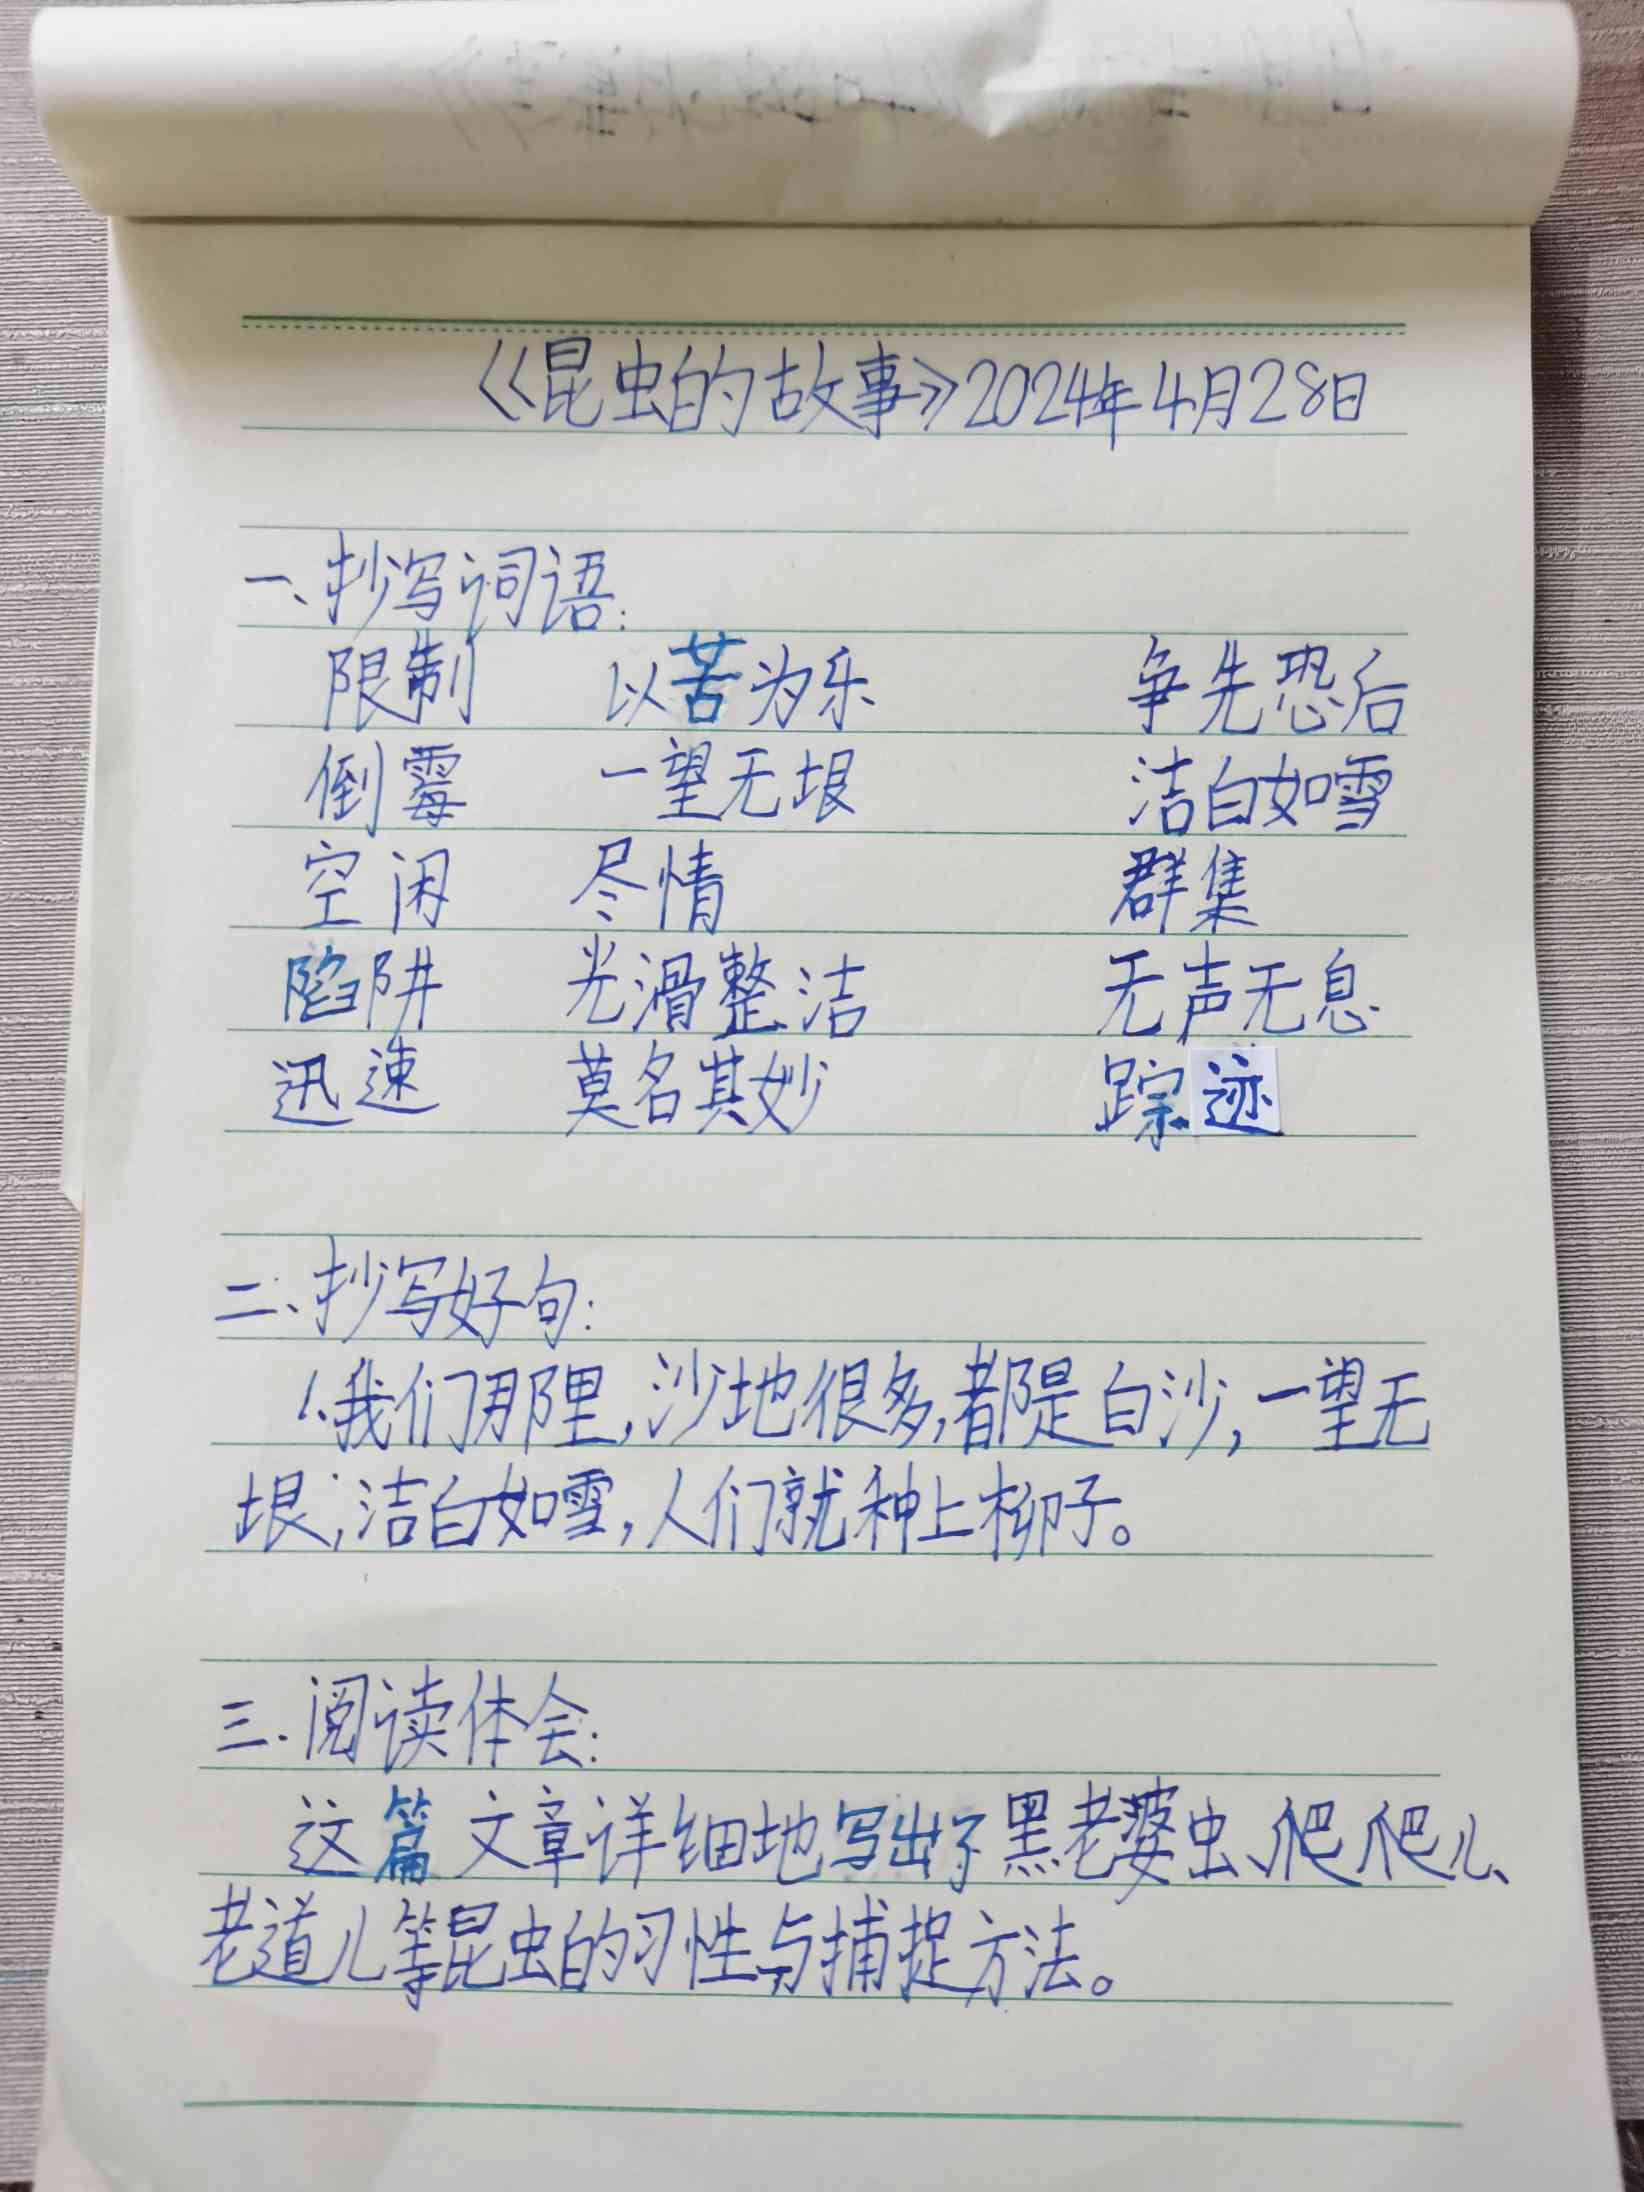 《昆虫的故事》2024年4月28日
一、抄写词语:
限制 以苦为乐 争先恐后
倒霉 一望无垠 洁白如雪
空闲 尽情 群集
陷阱 光滑整洁 无声无息
迅速 莫名其妙 踪迹
二、抄写好句:
1.我们那里,沙地很多,都是白沙,一望无
垠,洁白如雪,人们就种上柳子。
三.阅读体会:
这篇文章详细地写出了黑老婆虫、爬爬儿、
老道儿等昆虫的习性与捕捉方法。